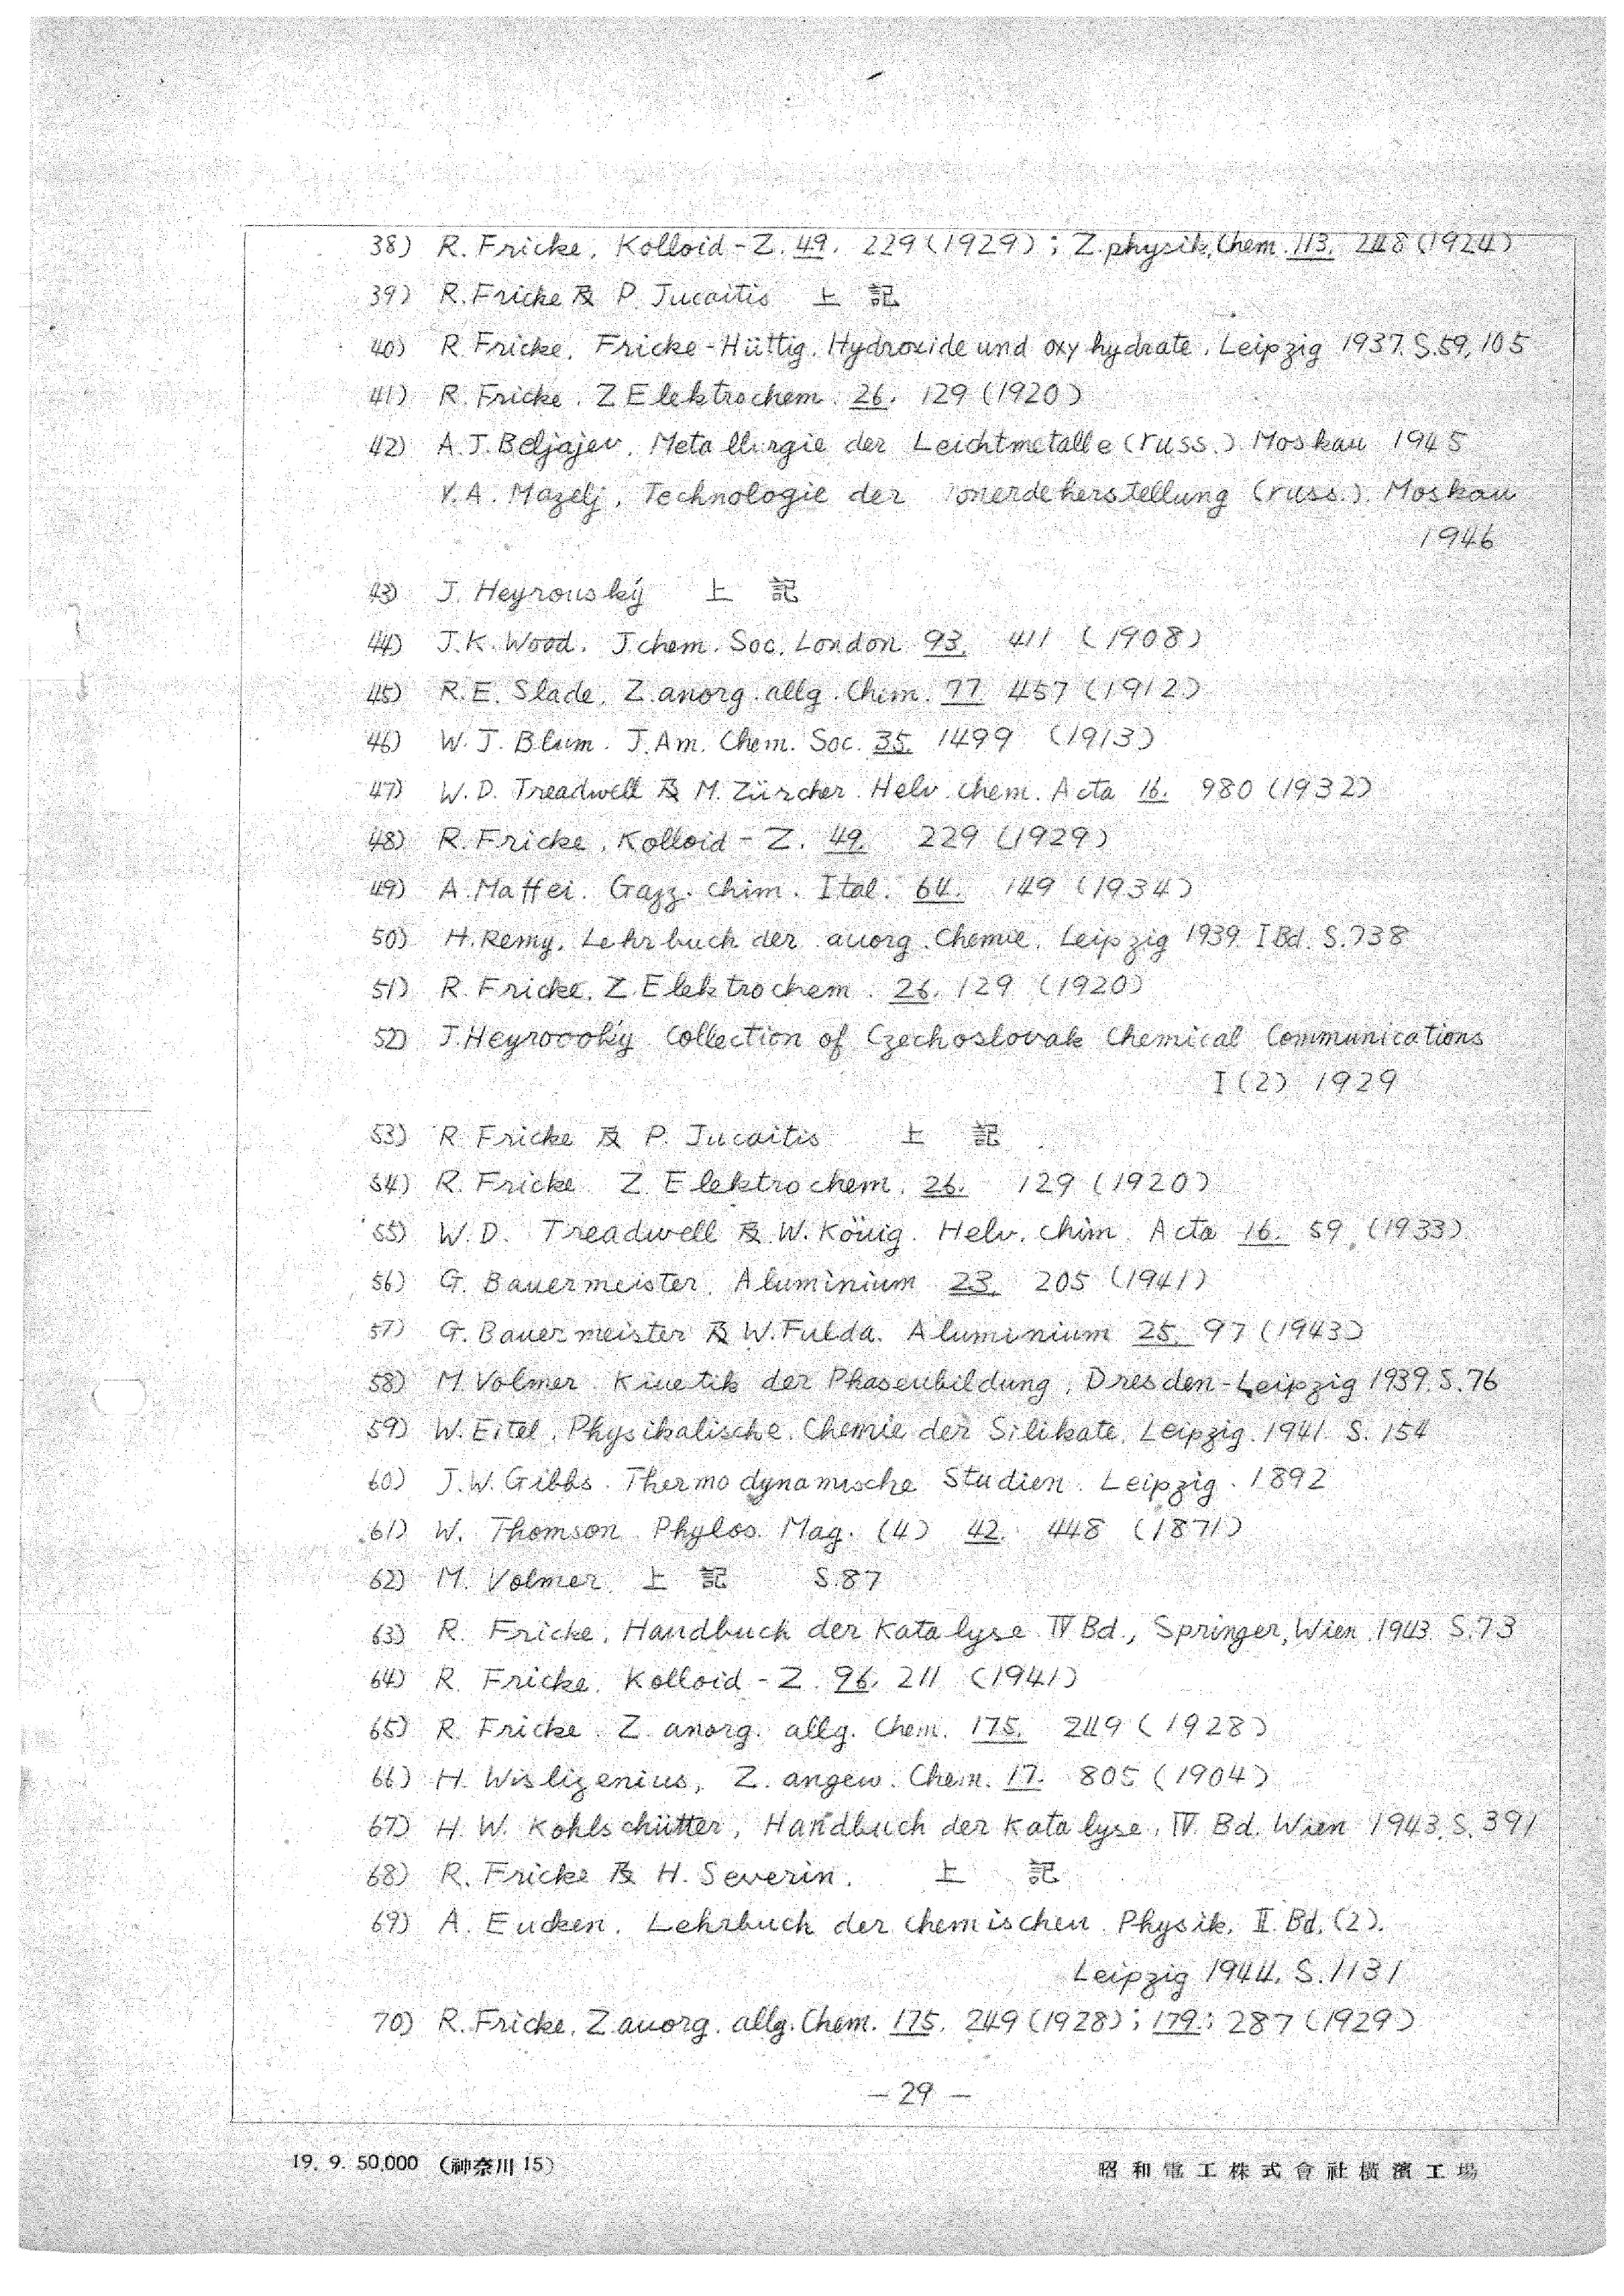 38) R. Fricke, Kolloid-Z. 49. 229 (1929) ; Z. physik. Chem. 113. 248 (1924)
39) R. Fricke 及 P. Jucaitis 上 記
40) R. Fricke, Fricke-Hüttig. Hydroxide und oxyhydrate, Leipzig 1937. S.59, 105
41) R. Fricke. Z Elektrochem. 26. 129 (1920)
42) A. J. Beljajev. Metallurgie der Leichtmetalle (russ.) Moskau 1945
V. A. Mazelj, Technologie der Tonerdeherstellung (russ.) Moskau
1946
43) J. Heyrouský 上 記
44) J. K. Wood. J. chem. Soc. London 93. 411 (1908)
45) R. E. Slade, Z. anorg. allg. Chem. 77 457 (1912)
46) W. J. Blum. J. Am. Chem. Soc. 35. 1499 (1913)
47) W. D. Treadwell 及 M. Zürcher. Helv. chem. Acta 16. 980 (1932)
48) R. Fricke, Kolloid-Z. 49. 229 (1929)
49) A. Maffei. Gazz. chim. Ital. 64. 149 (1934)
50) H. Remy, Lehrbuch der auorg. Chemie. Leipzig 1939 I Bd. S.738
51) R. Fricke. Z. Elektrochem. 26. 129 (1920)
52) J. Heyroooký Collection of Czechoslovak Chemical Communications
I (2) 1929
53) R. Fricke 及 P. Jucaitis 上 記
54) R. Fricke Z. Elektrochem. 26. 129 (1920)
55) W. D. Treadwell 及 W. Köuig. Helv. chim. Acta 16. 59. (1933)
56) G. Bauermeister. Aluminium 23. 205 (1941)
57) G. Bauermeister 及 W. Fulda. Aluminium 25. 97 (1943)
58) M. Volmer Kiuetik der Phaseubildung, Dresden-Leipzig 1939. S. 76
59) W. Eitel, Physikalische Chemie der Silikate. Leipzig. 1941. S. 154
60) J. W. Gibbs. Thermodynamische Studien. Leipzig. 1892
61) W. Thomson Phylos. Mag. (4) 42. 448 (1871)
62) M. Volmer 上 記 S.87
63) R. Fricke, Handbuch der Katalyse IV Bd., Springer, Wien. 1943. S.73
64) R. Fricke. Kolloid-Z. 96. 211 (1941)
65) R. Fricke. Z. anorg. allg. Chem. 175. 249 (1928)
66) H. Wislizenius, Z. angew. Chem. 17. 805 (1904)
67) H. W. Kohlschütter, Handbuch der Katalyse, IV Bd. Wien 1943. S. 391
68) R. Fricke 及 H. Severin. 上 記
69) A. Eucken. Lehrbuch der chemischen Physik. II. Bd. (2).
Leipzig 1944. S. 1131
70) R. Fricke. Z. auorg. allg. Chem. 175. 249 (1928) ; 179. ; 287 (1929)
— 29 —
19. 9. 50,000 (神奈川 15)
昭和電工株式會社橫濱工場